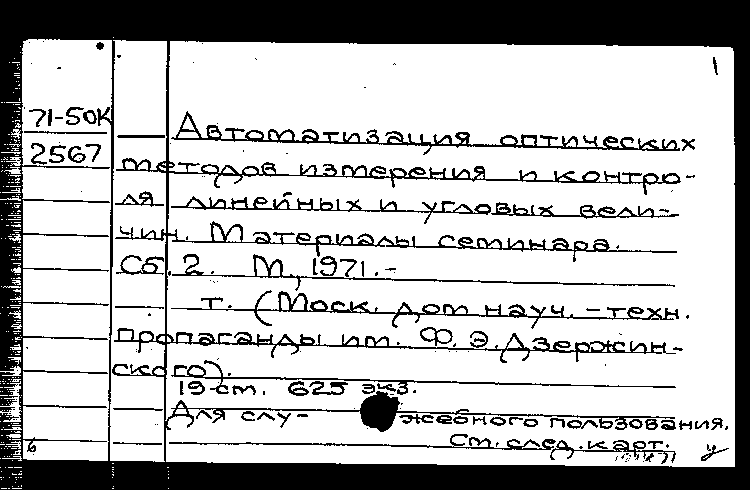 1
71-50К Автоматизация оптических
2567 методов измерения и контро-
ля линейных и угловых вели-
чин. Материалы семинара.
Сб. 2. М., 1971.-
т. (Моск. дом науч. -техн.
пропаганды им. Ф. Э. Дзержин-
ского).
19 см. 625 экз.
Для слу- жебного пользования.
См. след. карт.
б у